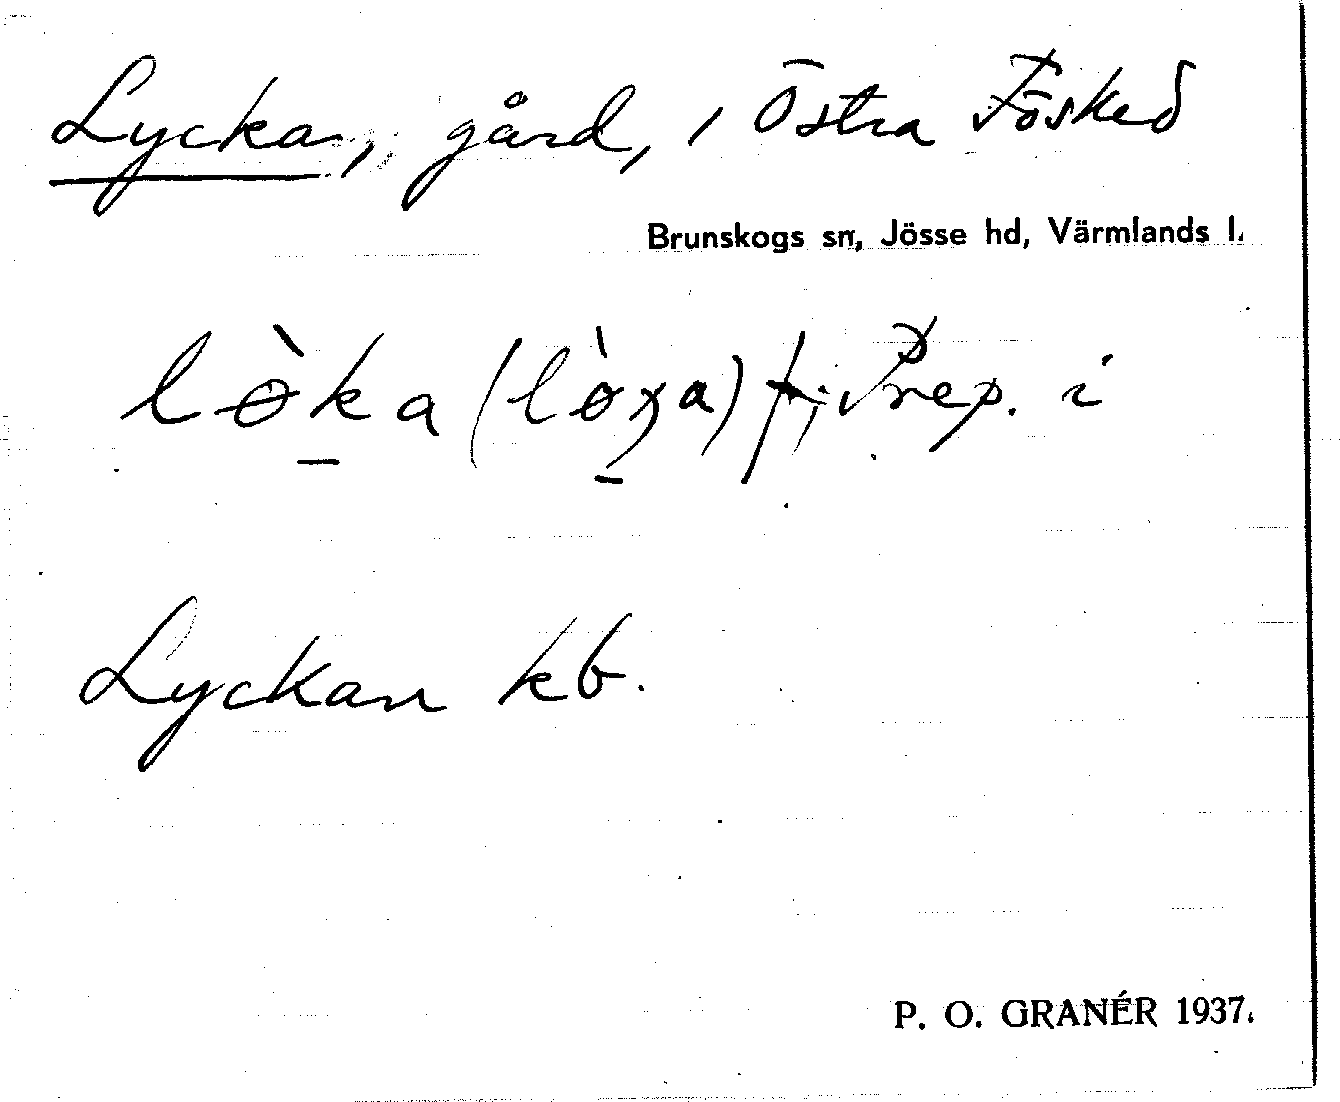 Lycka, gård, i Östra Fösked
Brunskogs sn, Jösse hd, Värmlands l.
lɵ̀ka (lɵ̀χa) f.; Prep. i
Lyckan kb.
P. O. GRANÉR 1937.